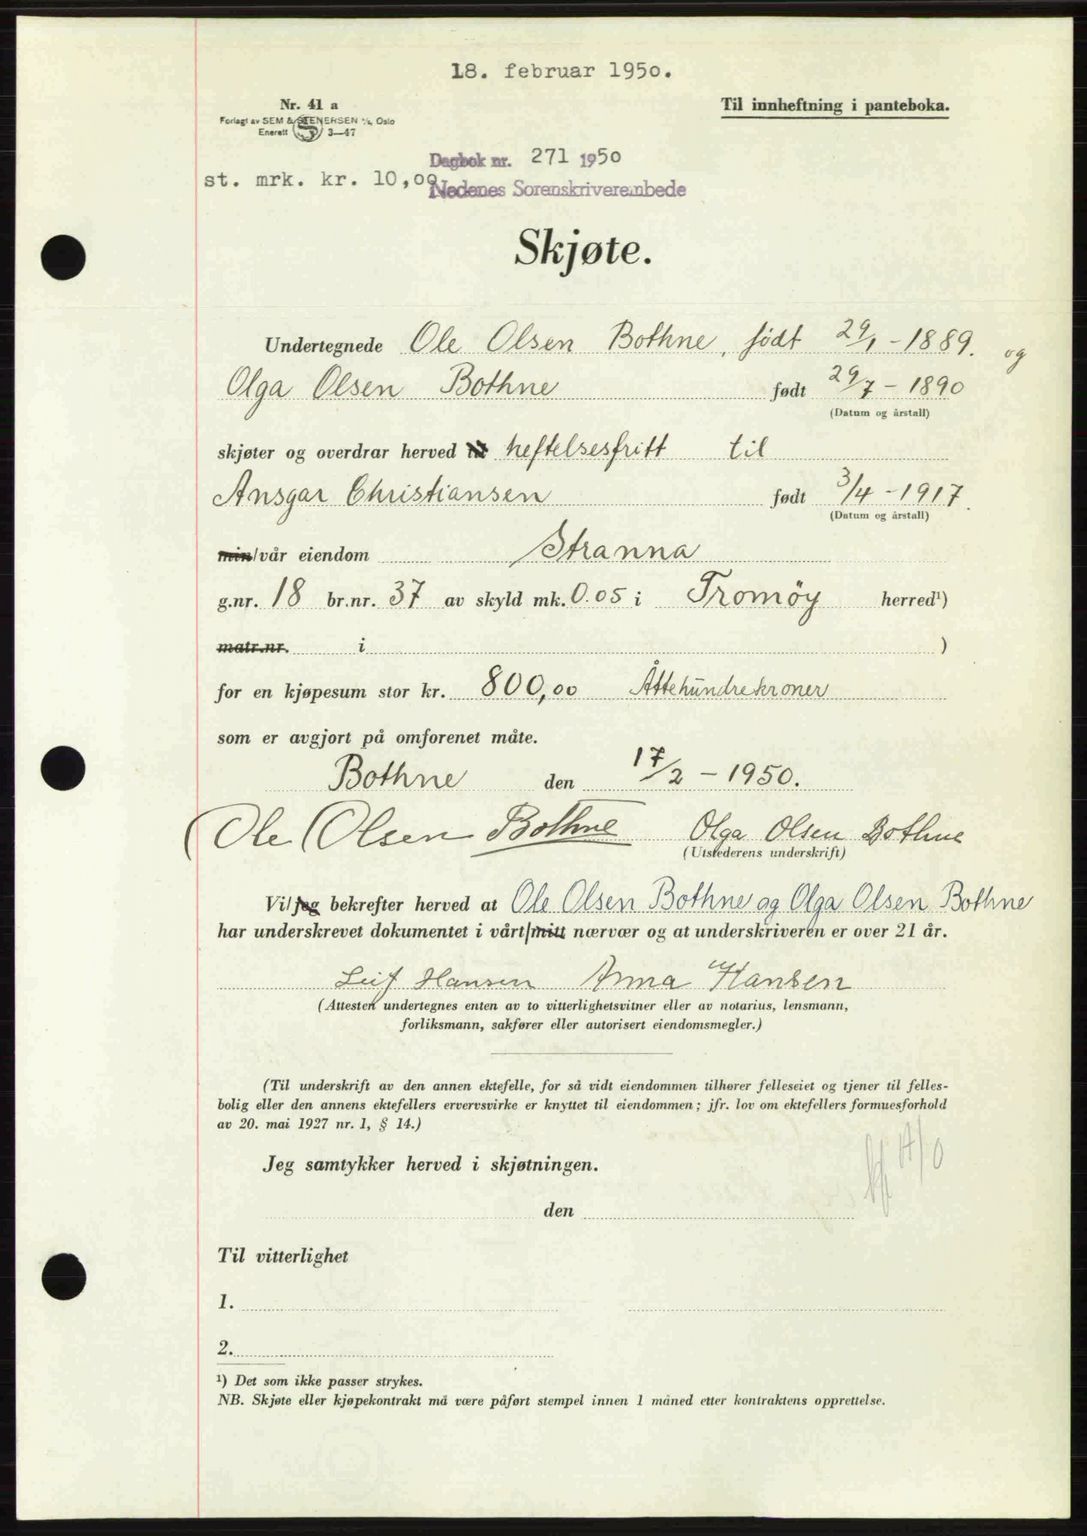 18. februar 1950.
Nr. 41 a
Til innheftning i panteboka.
Forlagt av SEM & STENERSEN A/s, Oslo
Enerett S 3—47
Dagbok nr. 271 1950
st. mrk. kr. 10,00
Nedenes Sorenskriverembede
Skjøte.
Undertegnede Ole Olsen Bothne, født 29/1 - 1889. og
Olga Olsen Bothne født 29/7 - 1890
(Datum og årstall)
skjøter og overdrar herved heftelsesfritt til
Ansgar Christiansen født 3/4 - 1917.
(Datum og årstall)
min/vår eiendom Stranna
g.nr. 18 br.nr. 37 av skyld mk. 0.05 i Tromøy herred¹)
matr.nr. i )
for en kjøpesum stor kr. 800,00 Åttehundrekroner
som er avgjort på omforenet måte.
Bothne den 17/2 - 1950.
Ole Olsen Bothne Olga Olsen Bothne
(Utstederens underskrift)
Vi/jeg bekrefter herved at Ole Olsen Bothne og Olga Olsen Bothne
har underskrevet dokumentet i vårt/mitt nærvær og at underskriveren er over 21 år.
Leif Hansen Anna Hansen
(Attesten undertegnes enten av to vitterlighetsvitner eller av notarius, lensmann,
forliksmann, sakfører eller autorisert eiendomsmegler.)
(Til underskrift av den annen ektefelle, for så vidt eiendommen tilhører felleseiet og tjener til felles-
bolig eller den annens ektefellers ervervsvirke er knyttet til eiendommen; jfr. lov om ektefellers formuesforhold
av 20. mai 1927 nr. 1, § 14.)
Jeg samtykker herved i skjøtningen.
den
Til vitterlighet
1.
2.
¹) Det som ikke passer strykes.
NB. Skjøte eller kjøpekontrakt må være påført stempel innen 1 måned etter kontraktens opprettelse.